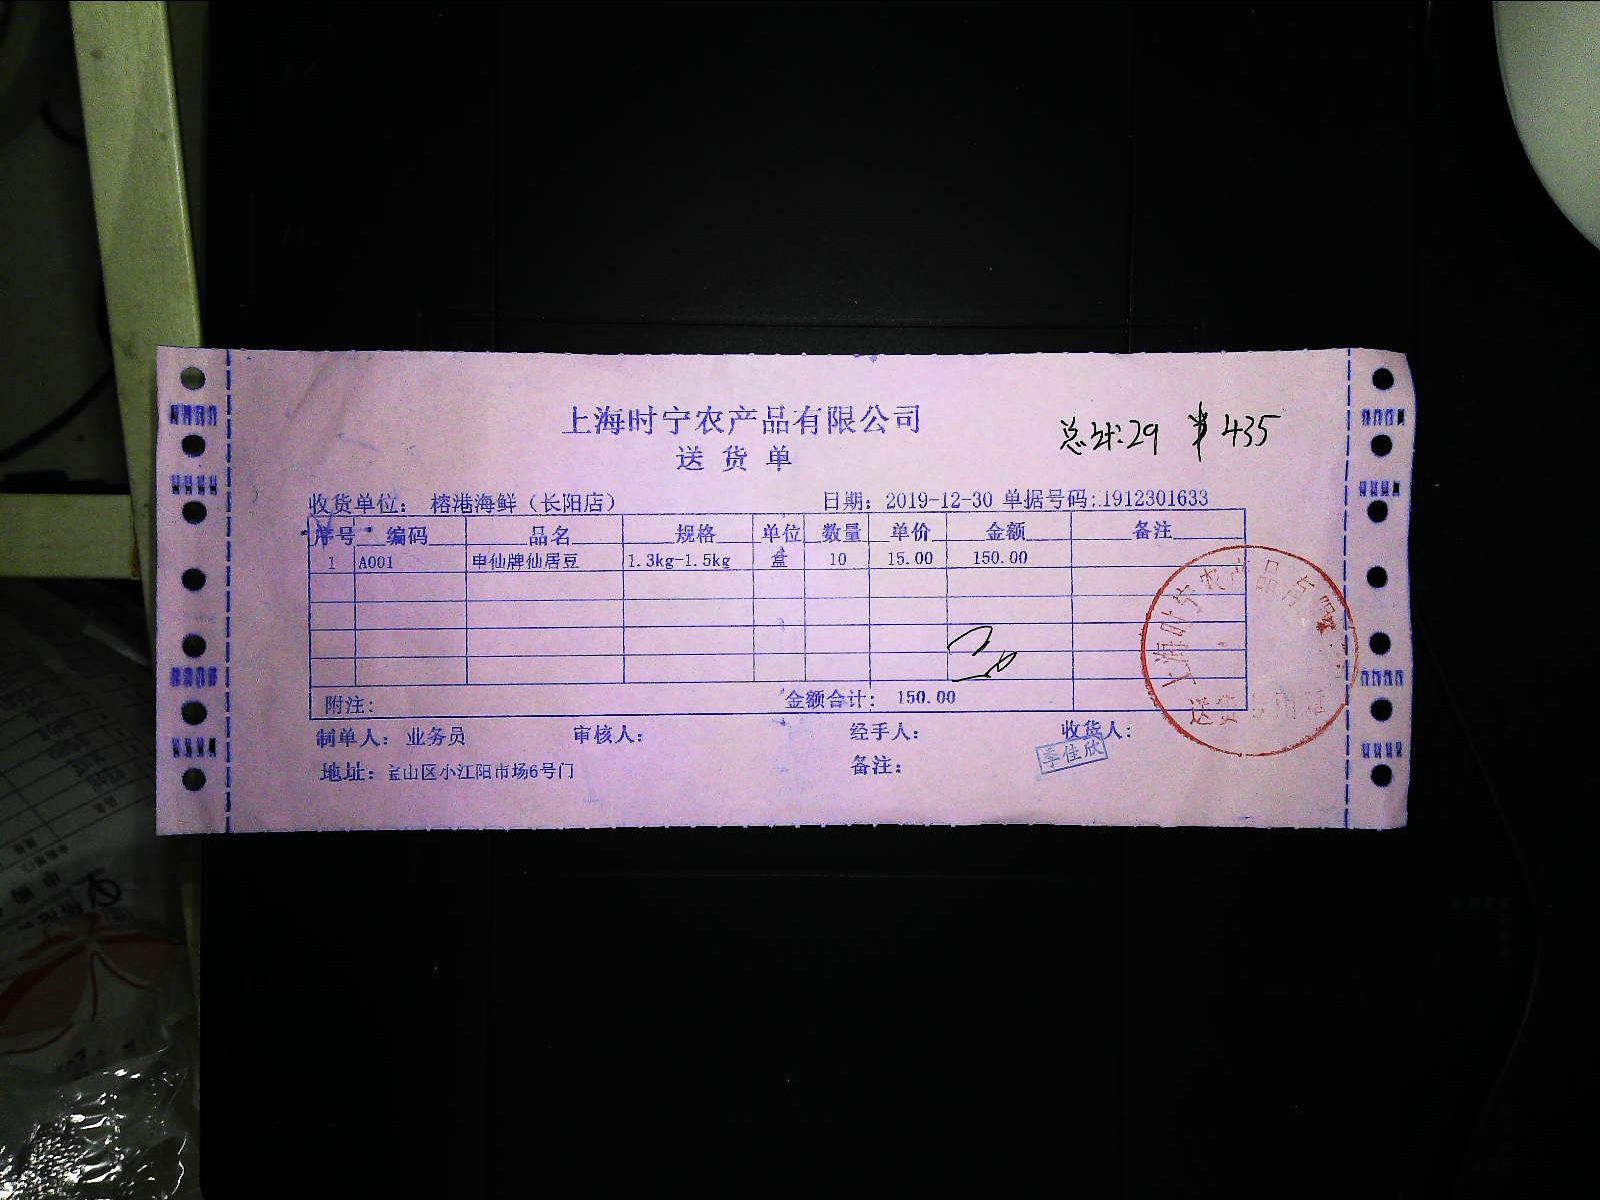 上海时宁农产品有限公司
总计:29 ¥435
送货单
收货单位: 榕港海鲜（长阳店） 日期: 2019-12-30 单据号码:1912301633
序号 编码 品名 规格 单位 数量 单价 金额 备注
1 A001 申仙牌仙居豆 1.3kg-1.5kg 盒 10 15.00 150.00
附注: 金额合计: 150.00
制单人: 业务员 审核人: 经手人: 收货人:
李佳欣
地址: 宝山区小江阳市场6号门 备注:
上海时宁农产品有限
送货专用章